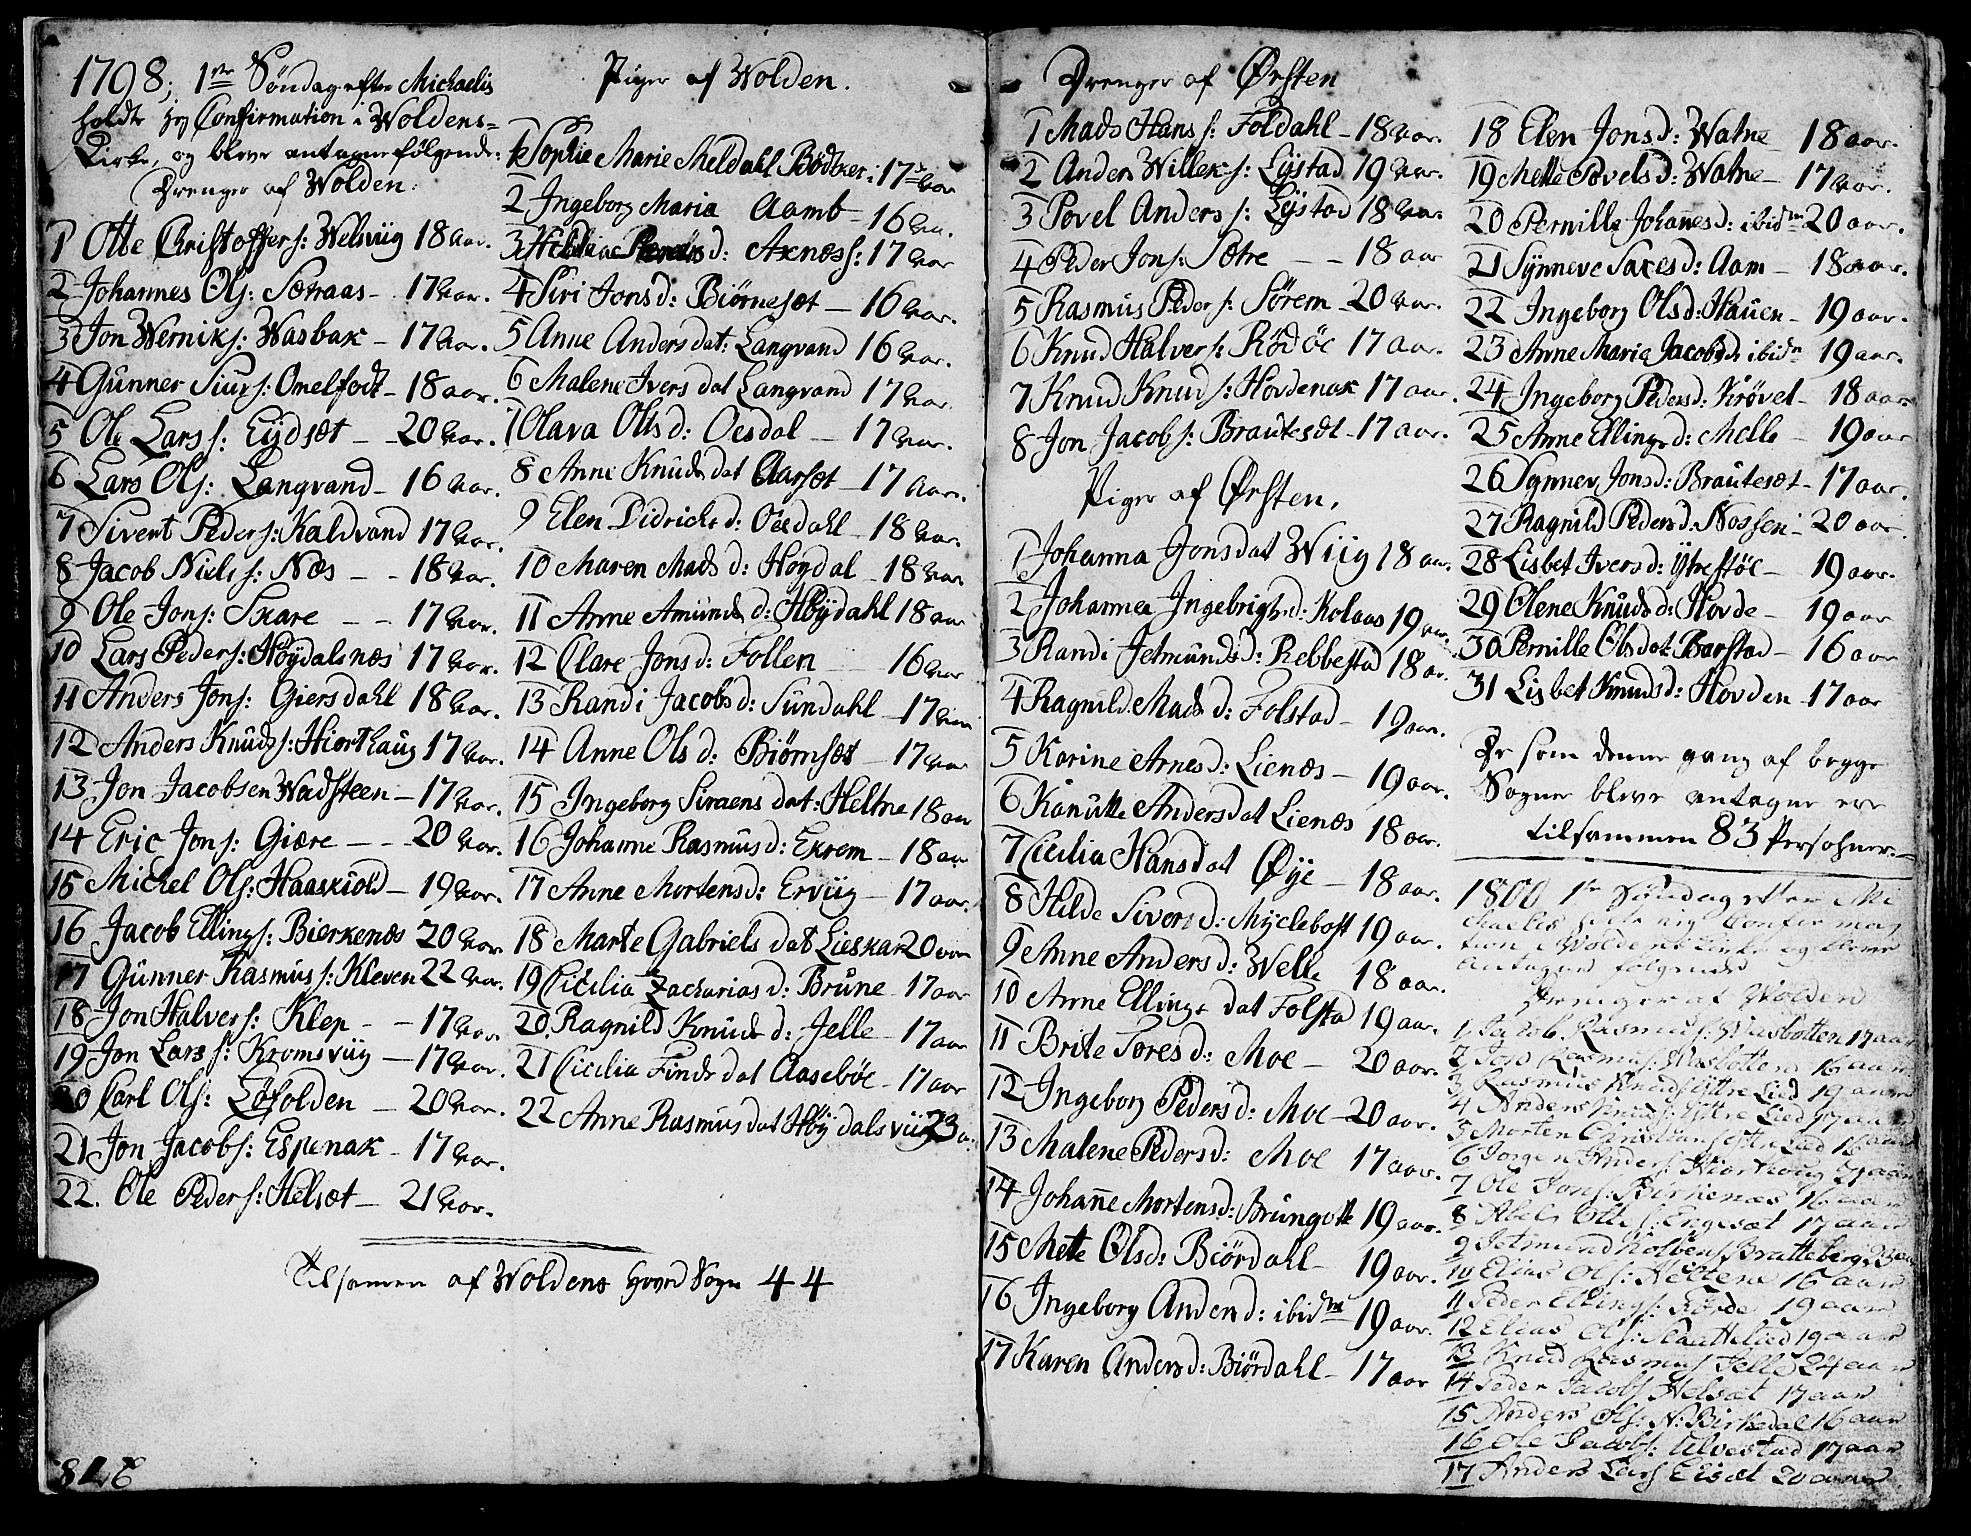 1798; 1ste Søndag efter Michaelis
holdt jeg Confirmation i Woldens-
Kirke, og bleve antagne følgende:
Drenge af Wolden:
1 Otte Christoffers: Welsviig 18 aar.
2 Johannes Ols: Sætraas - 17 aar.
3 Jon Werniks: Wasbak - 17 aar.
4 Gunner Siurs: Omelfodt - 18 aar.
5 Ole Lars s: Eydsæt - 20 aar.
6 Lars Ols: Langvand - 16 aar.
7 Sivert Peders: Kaldvand 17 aar.
8 Jacob Niels s: Næs - - 18 aar.
9 Ole Jons: Skare - - 17 aar.
10 Lars Peders: Høydalsnæs 17 aar.
11 Anders Jons: Giersdahl 18 aar.
12 Anders Knuds s: Hiorthaug 17 aar.
13 Jon Jacobsen Wadsteen - 17 aar.
14 Eric Jons: Giære - - 20 aar.
15 Michel Ols: Haaskiold - 19 aar.
16 Jacob Ellings: Bierkenæs 20 aar
17 Gunner Rasmus s: Kleven 22 aar.
18 Jon Halvers: Klep - - 17 aar.
19 Jon Lars s: Kromsviig - 17 aar.
20 Carl Ols: Løfolden - 20 aar.
21 Jon Jacobs: Espenak - 17 aar.
22. Ole Peders: Helsæt - 21 aar.
Tilsamen af Woldens Hoved Sogn 44
Piger af Wolden.
1 Sophie Marie Meldahl Bødtker: 17 aar
2 Ingeborg Maria Aamb - 16 aa.
3 d: Axnæss: 17 aar
4 Siri Jonsd: Biørnesæt - 16 aar.
5 Anne Andersdat: Langvand 16 aar.
6 Malene Iversdat Langvand 17 aar.
7 Olava Olsd: Oesdal - 17 aar.
8 Anne Knudsdat Aarsæt - 17 Aar.
9 Elen Didrichsd: Oesdahl - 18 aar.
10 Maren Madsd: Høydal - 18 aar
11 Anne Amundsd: Høydahl 18 aar
12 Clare Jonsd: Follen 16 aar
13 Randi Jacobsd: Sundahl - 17 aar
14 Anne Olsd: Biørnsæt - 17 aar
15 Ingeborg Siraens dat: Heltne 18 aar
16 Johanne Rasmusd: Exrem - 18 aar
17 Anne Mortensd: Erviig - 17 aar.
18 Marte Gabriels dat Lieskar 20 aar
19 Cicilia Zacharias d: Brune - 17 aar
20. Ragnild Knuds d: Jelle - 17 aar
21 Cicilia Finds dat Aasebøe - 17 aar
22 Anne Rasmusdat Høydalsviig 23 a.
Drenger af Ørsten
1 Mads Hans s: Foldahl - 18 aar.
2 Anders Willeks s: Lystad 19 aar.
3 Povel Anders s: Lystad 18 aar
4 Peder Jons: Sætre - - 18 aar
5 Rasmus Peders: Sørem - 20 aar.
6 Knud Halvers: Rødøe 17 aar.
7 Knud Knuds: Hovdenak 17 aar.
8 Jon Jacobs: Brautesæt - 17 aar.
Piger af Ørsten,
1 Johanna Jonsdat Wiig 18 aar.
2 Johanna Ingebrigtsd: Kolaas 19 aar.
3 Randi Jetmundsd: Rebbestad 18 aar.
4 Ragnild Madsd: Folstad - 19 aar.
5 Karine Arnesd: Lienæs - 19 aar.
6 Kanutte Andersdat Lienæs 18 aar.
7 Cicilia Hansdat Øye - 18 aar.
8 Hilde Siversd: Myclebost 19 aar.
9 Anne Andersd: Welle 18 aar.
10 Anne Ellings dat Folstad 19 aar.
11 Brite Soresd: Moe - 20 aar.
12 Ingeborg Pedersd: Moe - 20 aar.
13 Malene Pedersd: Moe 17 aar.
14 Johanne Mortensd: Brungott 19 aar.
15 Mette Olsd: Biørdahl - 19 aar.
16 Ingeborg Andersd: ibidm 19 aar.
17 Karen Andersd: Biørdahl - 17 aar
18 Elen Jonsd: Watne - 18 aar.
19 Mette Povelsd: Watne - 17 aar.
20 Pernille Johanesd: ibidm 20 aar.
21 Synneve Saxesd: Aam - 18 aar.
22 Ingeborg Olsd: Hauen - 19 aar.
23 Anne Maria Jacobsd: ibidm 19 aar.
24 Ingeborg Pedersd: Krøvel - 18 aar
25 Anne Ellingsd: Melle - 19 aar
26 Synnev Jonsd: Brautesæt - 17 aar.
27 Ragnild Pedersd: Nossen - 20 aar
28 Lisbet Iversd: Ytrestøe - 19 aar.
29 Olene Knudsd: Hovde - 19 aar
30 Pernille Olsdat Barstad - 16 aar
31 Lisbet Knudsd: Hovden - 17 aar
De som denne gang af begge
Sogner bleve antagne ere
tilsammen 83 Persohner.
1800 1ste Søndag efter Mi
chaelis holdt jeg Confirma
tion i Woldens Kirke og bleve
antagne følgende
Drenger af Wolden
1 Jacob Rasmus s: Wasbotten 17 aar
2 Jens Rasmus s: Wasbotten 16 aar
3 Rasmus Knuds Yttre Lied 19 aar
4 Anders Knuds: Yttre Lied 17 aar
5 Morten Christians Lied 16 aar
6 Jørgen Anders: Hiorthoug 21 aar
7 Ole Jons: Birkenæs 16 aar
8 Abel Otte s: Engesæt 17 aar
9 Jetmund Kolbens Bratteberg 23 aar
10 Elias Ols: Heltene 16 aar
11 Peder Ellings: Førde 19 aar
12 Elias Ols: Slaattelied 19 aar
13 Knud Rasmus Jelle 24 aar
14 Peder Jacobs Helsæt 17 aar
15 Anders Ols: N: Birkedal 16 aar
16 Ole Jacobs: Ulvestad 17 aar
17 Anders Lars Eisæt 20 aar